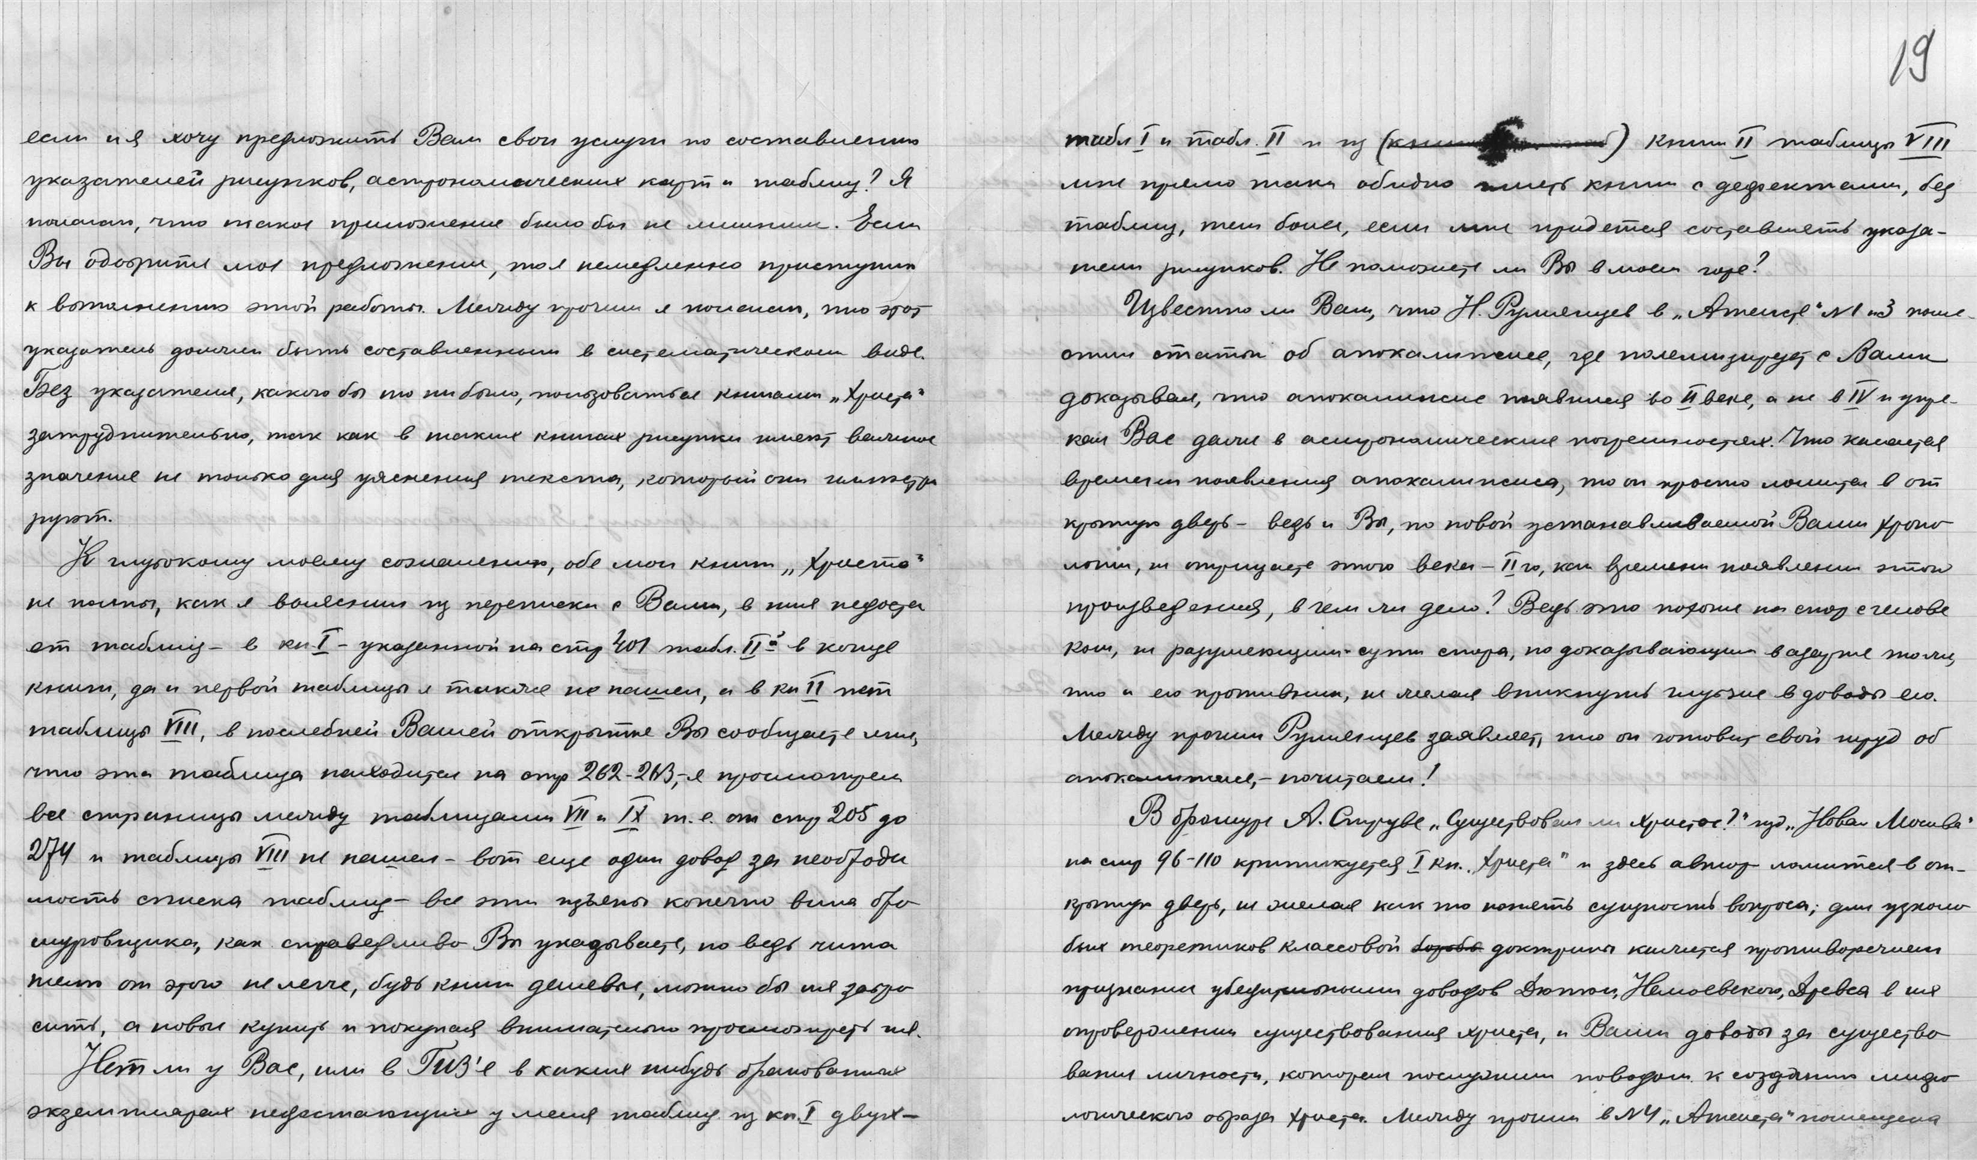 если и я хочу предложить Вам свои услуги по составлению
указателей рисунков, астрономических карт и таблиц? Я
полагаю, что такое приложение было бы не лишним. Если
Вы одобрите мое предложение, то я немедленно приступлю
к выполнению этой работы. Между прочим я полагаю, что этот
указатель должен быть составленным в систематическом виде.
Без указателя, какого бы то ни было, пользоваться книгами „Христа"
затруднительно, так как в таких книгах рисунки имеют важное
значение не только для уяснения текста, который они иллюстри
руют.
К глубокому моему сожалению, обе мои книги „Христа"
не полны, как я выяснил из переписки с Вами, в них недоста
ет таблиц – в кн I – указанной на стр 401 табл. II ой в конце
книги, да и первой таблицы я также не нашел, а в кн II нет
таблицы VIII, в последней Вашей открытке Вы сообщаете мне,
что эта таблица находится на стр 262-263, – я просмотрел
все страницы между таблицами VII и IX т.е. от стр 205 до
274 и таблицы VIII не нашел – вот еще один довод за необходи
мость списка таблиц – все эти изъяны конечно вина бро
шуровщика, как справедливо Вы указываете, но ведь чита
телю от этого не легче, будь книги дешевы, можно бы их забро
сить, а новые купить и покупая внимательно просмотреть их.
Нет ли у Вас, или в ГИЗ'е в каких нибудь бракованных
экземплярах недостающих у меня таблиц из кн I двух –
19
табл I и табл. II и из ( ) книги II таблицы VIII
мне прямо таки обидно иметь книги с дефектами, без
таблиц, тем более, если мне придется составлять указа-
тели рисунков. Не поможете ли Вы в моем горе?
Известно ли Вам, что Н. Румянцев в „Атеисте" N1 и 3 поме-
стил статьи об апокалипсисе, где полемизирует с Вами
доказывая, что апокалипсис появился во II веке, а не в IV и упре-
кая Вас даже в астрономических погрешностях. Что касается
времени появления апокалипсиса, то он просто ломится в от
крытую дверь – ведь и Вы, по новой устанавливаемой Вами хроно
логии, не отрицаете этого века – II го, как времени появления этого
произведения, в чем же дело? Ведь это похоже на спор с челове
ком, не разумеющим сути спора, но доказывающим в азарте то же,
что и его противник, не желая вникнуть глубже в доводы его.
Между прочим Румянцев заявляет, что он готовит свой труд об
апокалипсисе, – почитаем!
В брошюре А. Струве „Существовал ли Христос?" изд „Новая Москва"
на стр 96-110 критикуется I кн. „Христа" и здесь автор ломится в от-
крытую дверь, не желая как то понять сущность вопроса; для узколо
бых теоретиков классовой борьбы доктрины кажется противоречием
признание убедительными доводов Дюпюи, Немоевского, Древса в их
опровержении существования Христа, и Ваши доводы за существо
вание личности, которая послужила поводом к созданию мифо
логического образа Христа. Между прочим в N4 „Атеиста" помещена